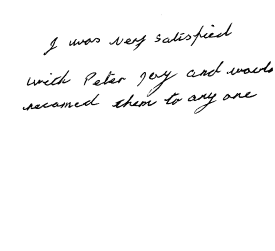 I was very satisfied
with Peter Jay and would
recomed them to any one